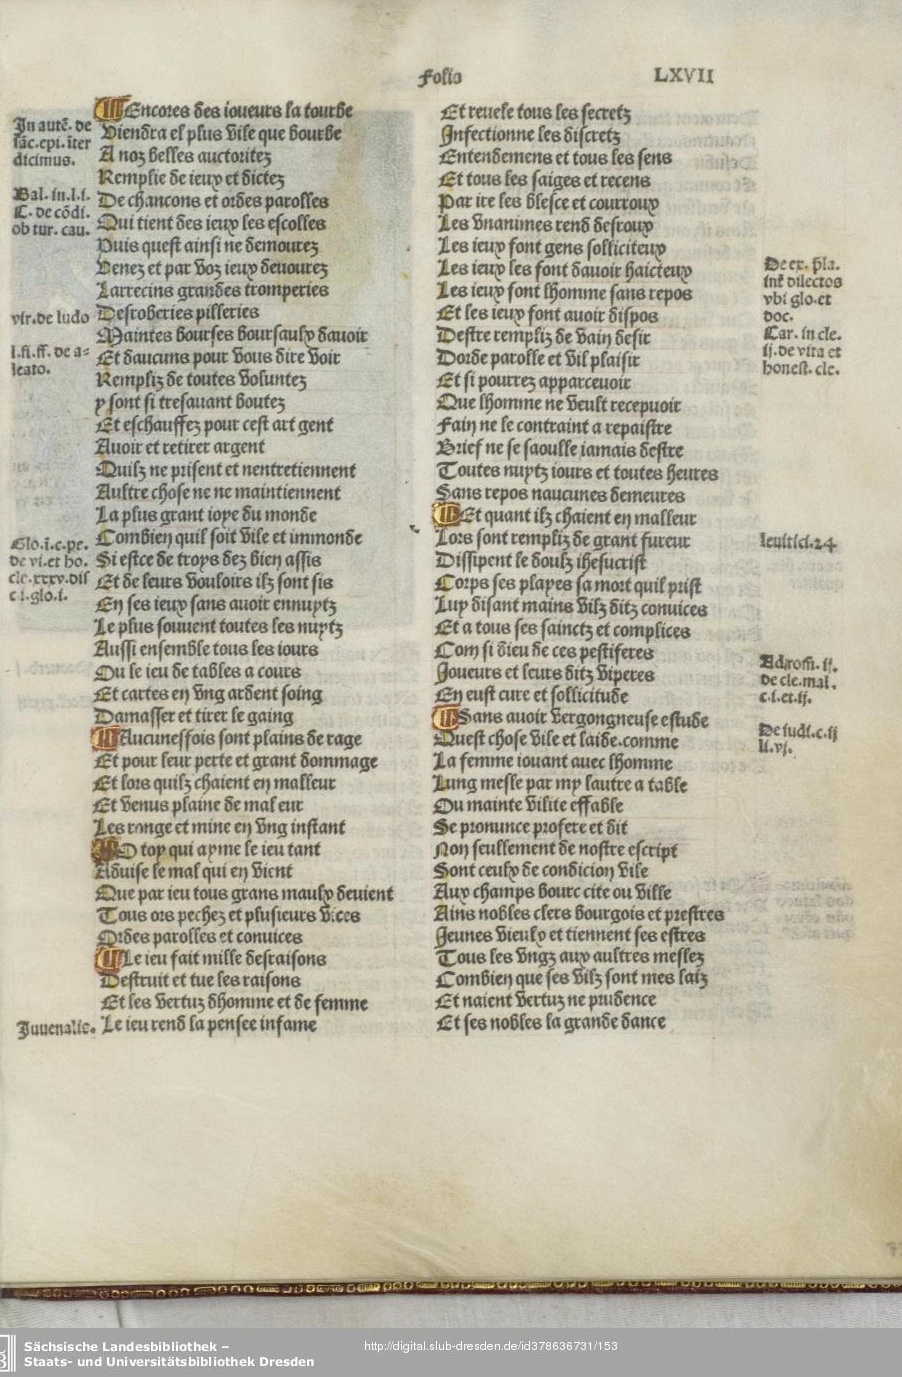 Folio LXVII
In autē. de
sāc. epi. īter
dicimus.
Bal. in. l. i.
C. de cōdi.
ob tur. cau.
vir. de ludo
l. fi. ff. de a-
leato.
Glo. ī. c. pe.
de vi. et ho.
cle. xxxv. dis
c i. glo. i.
Juuenalis.
Encores des ioueurs la tourbe
Viendra el plus vile que bourbe
A noz belles auctoritez
Remplie de ieux et dictez
De chancons et ordes parolles
Qui tient des ieux les escolles
Puis quest ainsi ne demourez
Venez et par voz ieux deuourez
Larrecins grandes tromperies
Desroberies pilleries
Maintes bourses boursaulx dauoir
Et daucuns pour vous dire voir
Rempliz de toutes voluntez
y sont si tresauant boutez
Et eschauffez pour cest art gent
Auoir et retirer argent
Quilz ne prisent et nentretiennent
Aultre chose ne ne maintiennent
La plus grant ioye du monde
Combien quil soit vile et immonde
Si estce de troys dez bien assis
Et de leurs vouloirs ilz sont sis
En ses ieux sans auoir ennuytz
Le plus souuent toutes les nuytz
Aussi ensemble tous les iours
Ou le ieu de tables a cours
Et cartes en vng ardent soing
Damasser et tirer le gaing
Aucunesfois sont plains de rage
Et pour leur perte et grant dommage
Et lors quilz chaient en malleur
Et venus plaine de mal eur
Les ronge et mine en vng instant
O toy qui ayme le ieu tant
Aduise le mal qui en vient
Que par ieu tous grans maulx deuient
Tous ors pechez et plusieurs vices
Ordes parolles et conuices
Le ieu fait mille desraisons
Destruit et tue les raisons
Et les vertuz dhomme et de femme
Le ieu rend la pensee infame
Et reuele tous les secretz
Infectionne les discretz
Entendemens et tous les sens
Et tous les saiges et recens
Par ire les blesce et courroux
Les vnanimes rend desroux
Les ieux font gens solliciteux
Les ieux les font dauoir haicteux
Les ieux font lhomme sans repos
Et les ieux font auoir dispos
Destre rempliz de vain desir
Dorde parolle et vil plaisir
Et si pourrez apparceuoir
Que lhomme ne veult recepuoir
Fain ne le contraint a repaistre
Brief ne se saoulle iamais destre
Toutes nuytz iours et toutes heures
Sans repos naucunes demeures
Et quant ilz chaient en malleur
Lors sont rempliz de grant fureur
Dissipent le doulx ihesucrist
Corps ses playes sa mort quil prist
Luy disant mains vilz ditz conuices
Et a tous ses sainctz et complices
Com si dieu de ces pestiferes
Joueurs et leurs ditz viperes
En eust cure et sollicitude
Sans auoir vergongneuse estude
Quest chose vile et laide. comme
La femme iouant auec lhomme
Lung mesle par my lautre a table
Ou mainte vilite effable
Se pronunce profere et dit
Non seullement de nostre escript
Sont ceulx de condicion vile
Aux champs bourc cite ou ville
Ains nobles clers bourgois et prestres
Jeunes vieulx et tiennent ses estres
Tous les vngz aux aultres meslez
Combien que ses vilz sont mes laiz
Et naient vertuz ne prudence
Et ses nobles la grande dance
De ex. p̄la.
int̄ dilectos
vbi glo. et
doc.
Car. in cle.
ij. de vita et
honest. cle.
leuitici. 24.
de cle. mal.
c. i. et. ij.
De iudi. c. ij
li. vj.
Sächsische Landesbibliothek –
Staats- und Universitätsbibliothek Dresden
http://digital.slub-dresden.de/id378636731/153